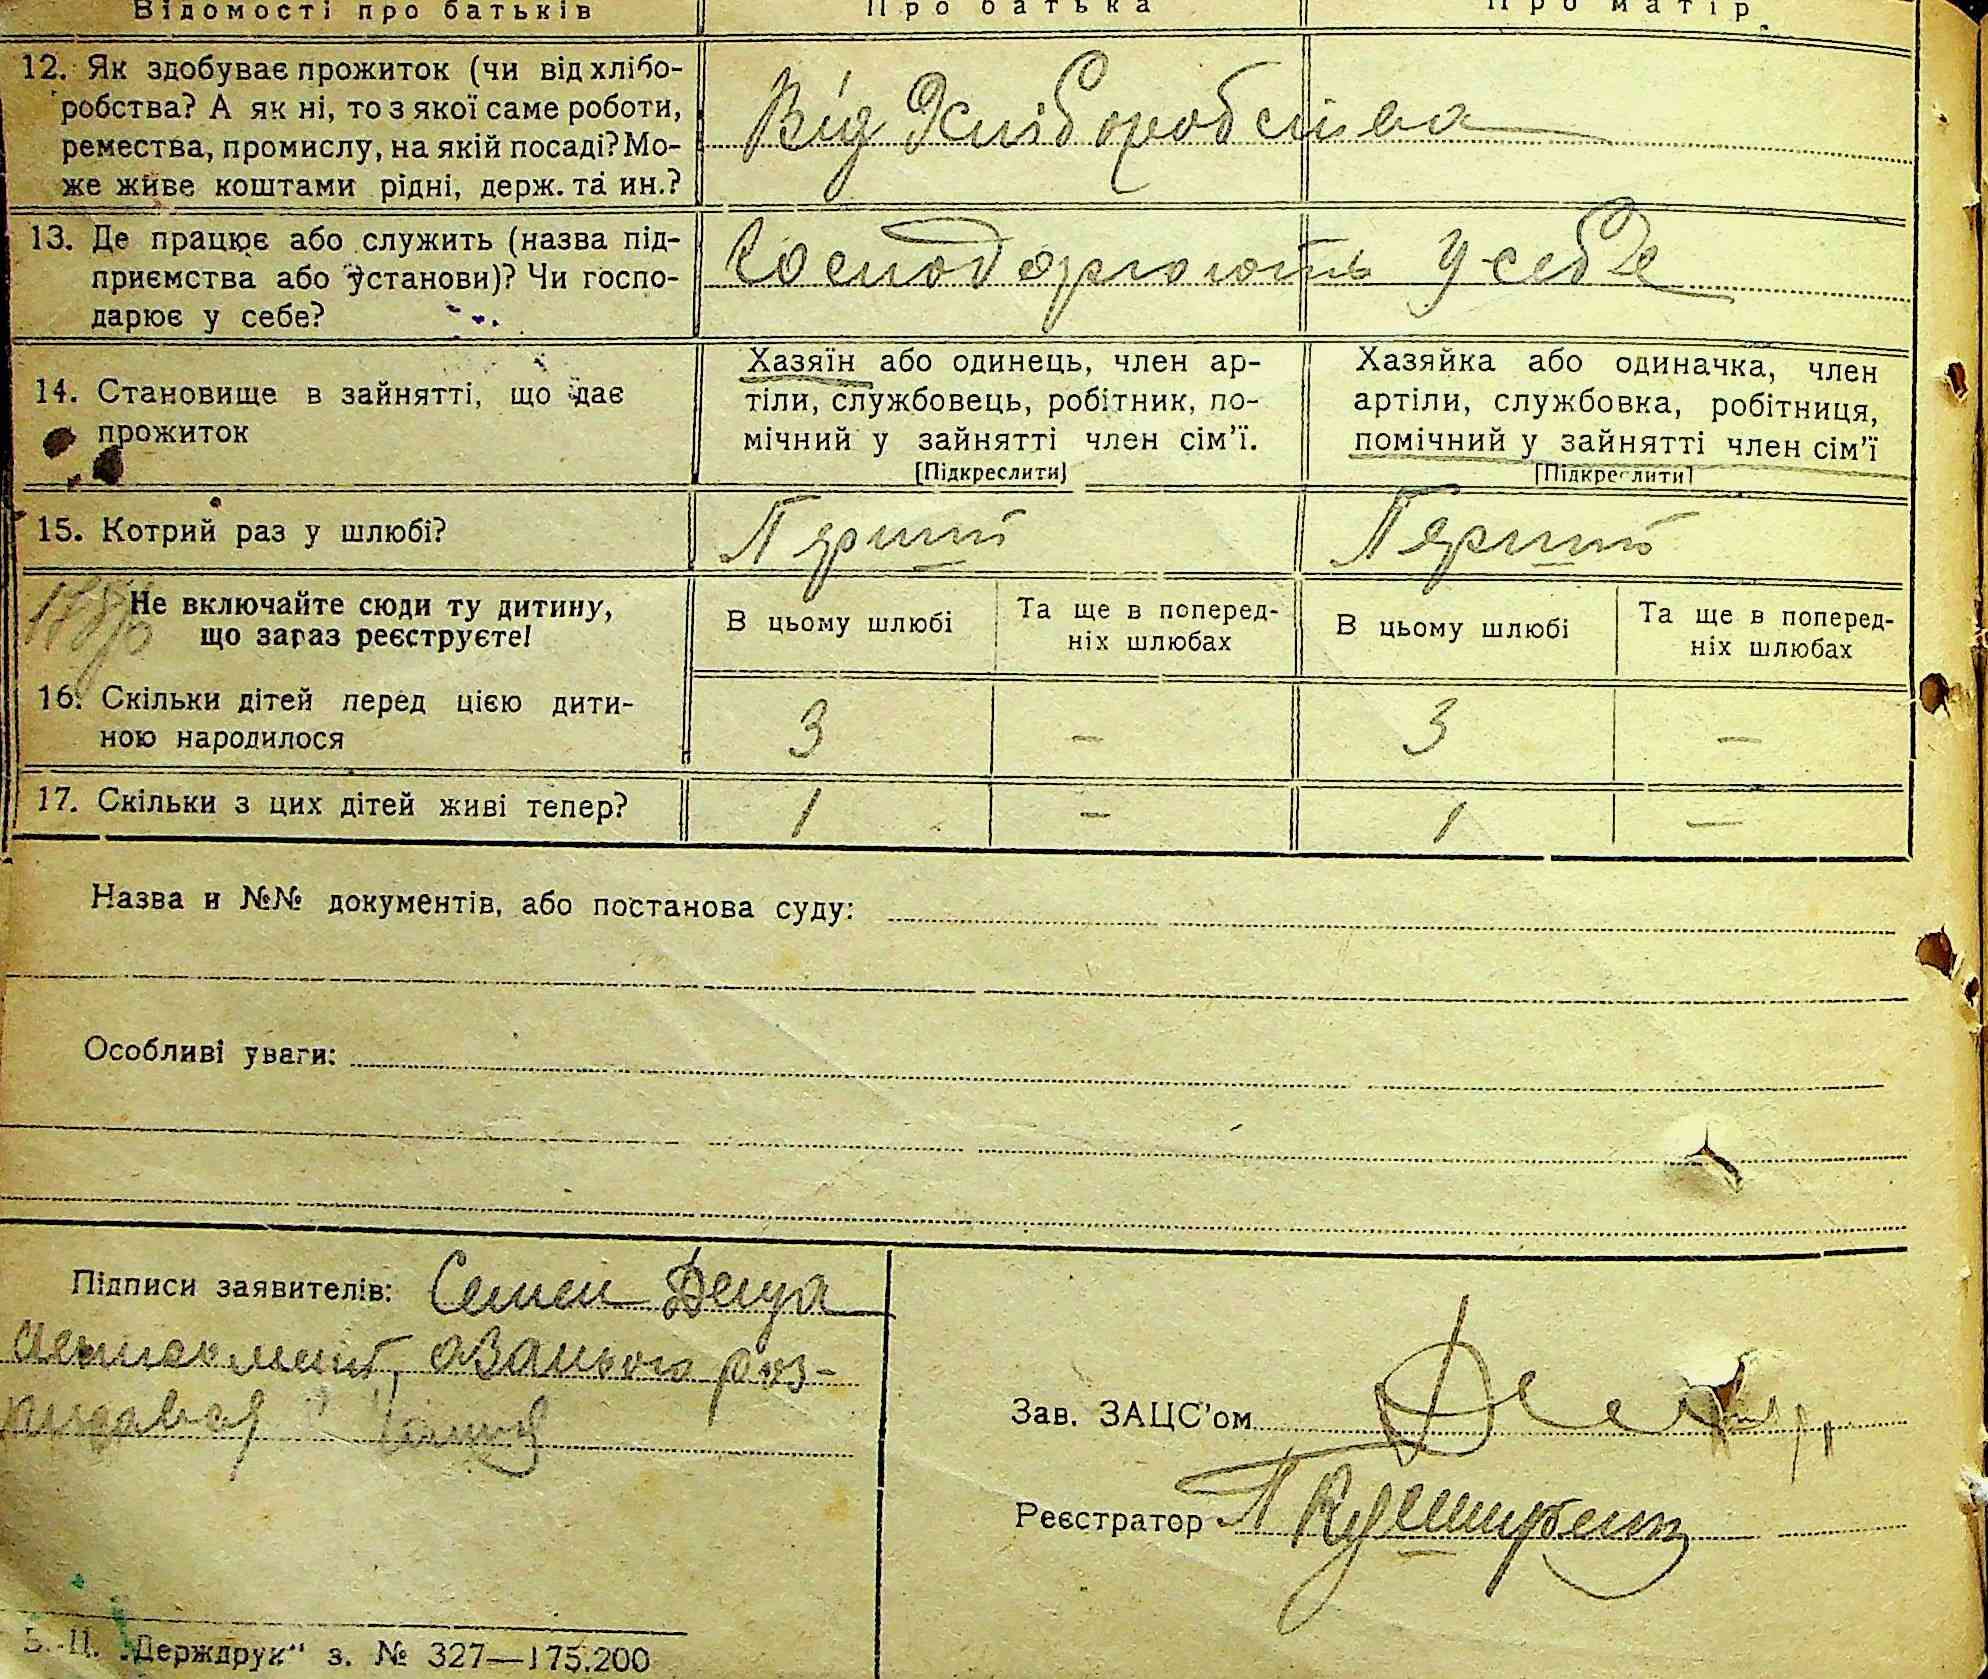 Відомості про батьків
Про батька
Про матір
12. Як здобуває прожиток (чи від хлібо-
робства? А як ні, то з якої саме роботи,
ремества, промислу, на якій посаді? Мо-
же живе коштами рідні, держ. та ин.?
Від Хліборобства
13. Де працює або служить (назва під-
приємства або установи)? Чи госпо-
дарює у себе?
Господорюють у себе
14. Становище в зайнятті, що дає
прожиток
Хазяїн або одинець, член ар-
тіли, службовець, робітник, по-
мічний у зайнятті член сім'ї.
[Підкреслити]
Хазяйка або одиначка, член
артіли, службовка, робітниця,
помічний у зайнятті член сім'ї
[Підкреслити]
15. Котрий раз у шлюбі?
Перший
Перший
Не включайте сюди ту дитину,
що зараз реєструєте!
В цьому шлюбі
Та ще в поперед-
ніх шлюбах
В цьому шлюбі
Та ще в поперед-
ніх шлюбах
16. Скільки дітей перед цією дити-
ною народилося
3 – 3 –
17. Скільки з цих дітей живі тепер?
1 – 1 –
Назва и №№ документів, або постанова суду:
Особливі уваги:
Підписи заявителів: Семен
роз-
Зав. ЗАЦС'ом
Реєстратор
Б.-Ц. „Держдрук" з. № 327—175.200